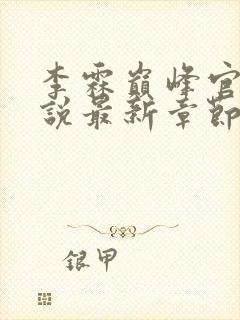 李霖巔峰官
說最新章節
銀甲